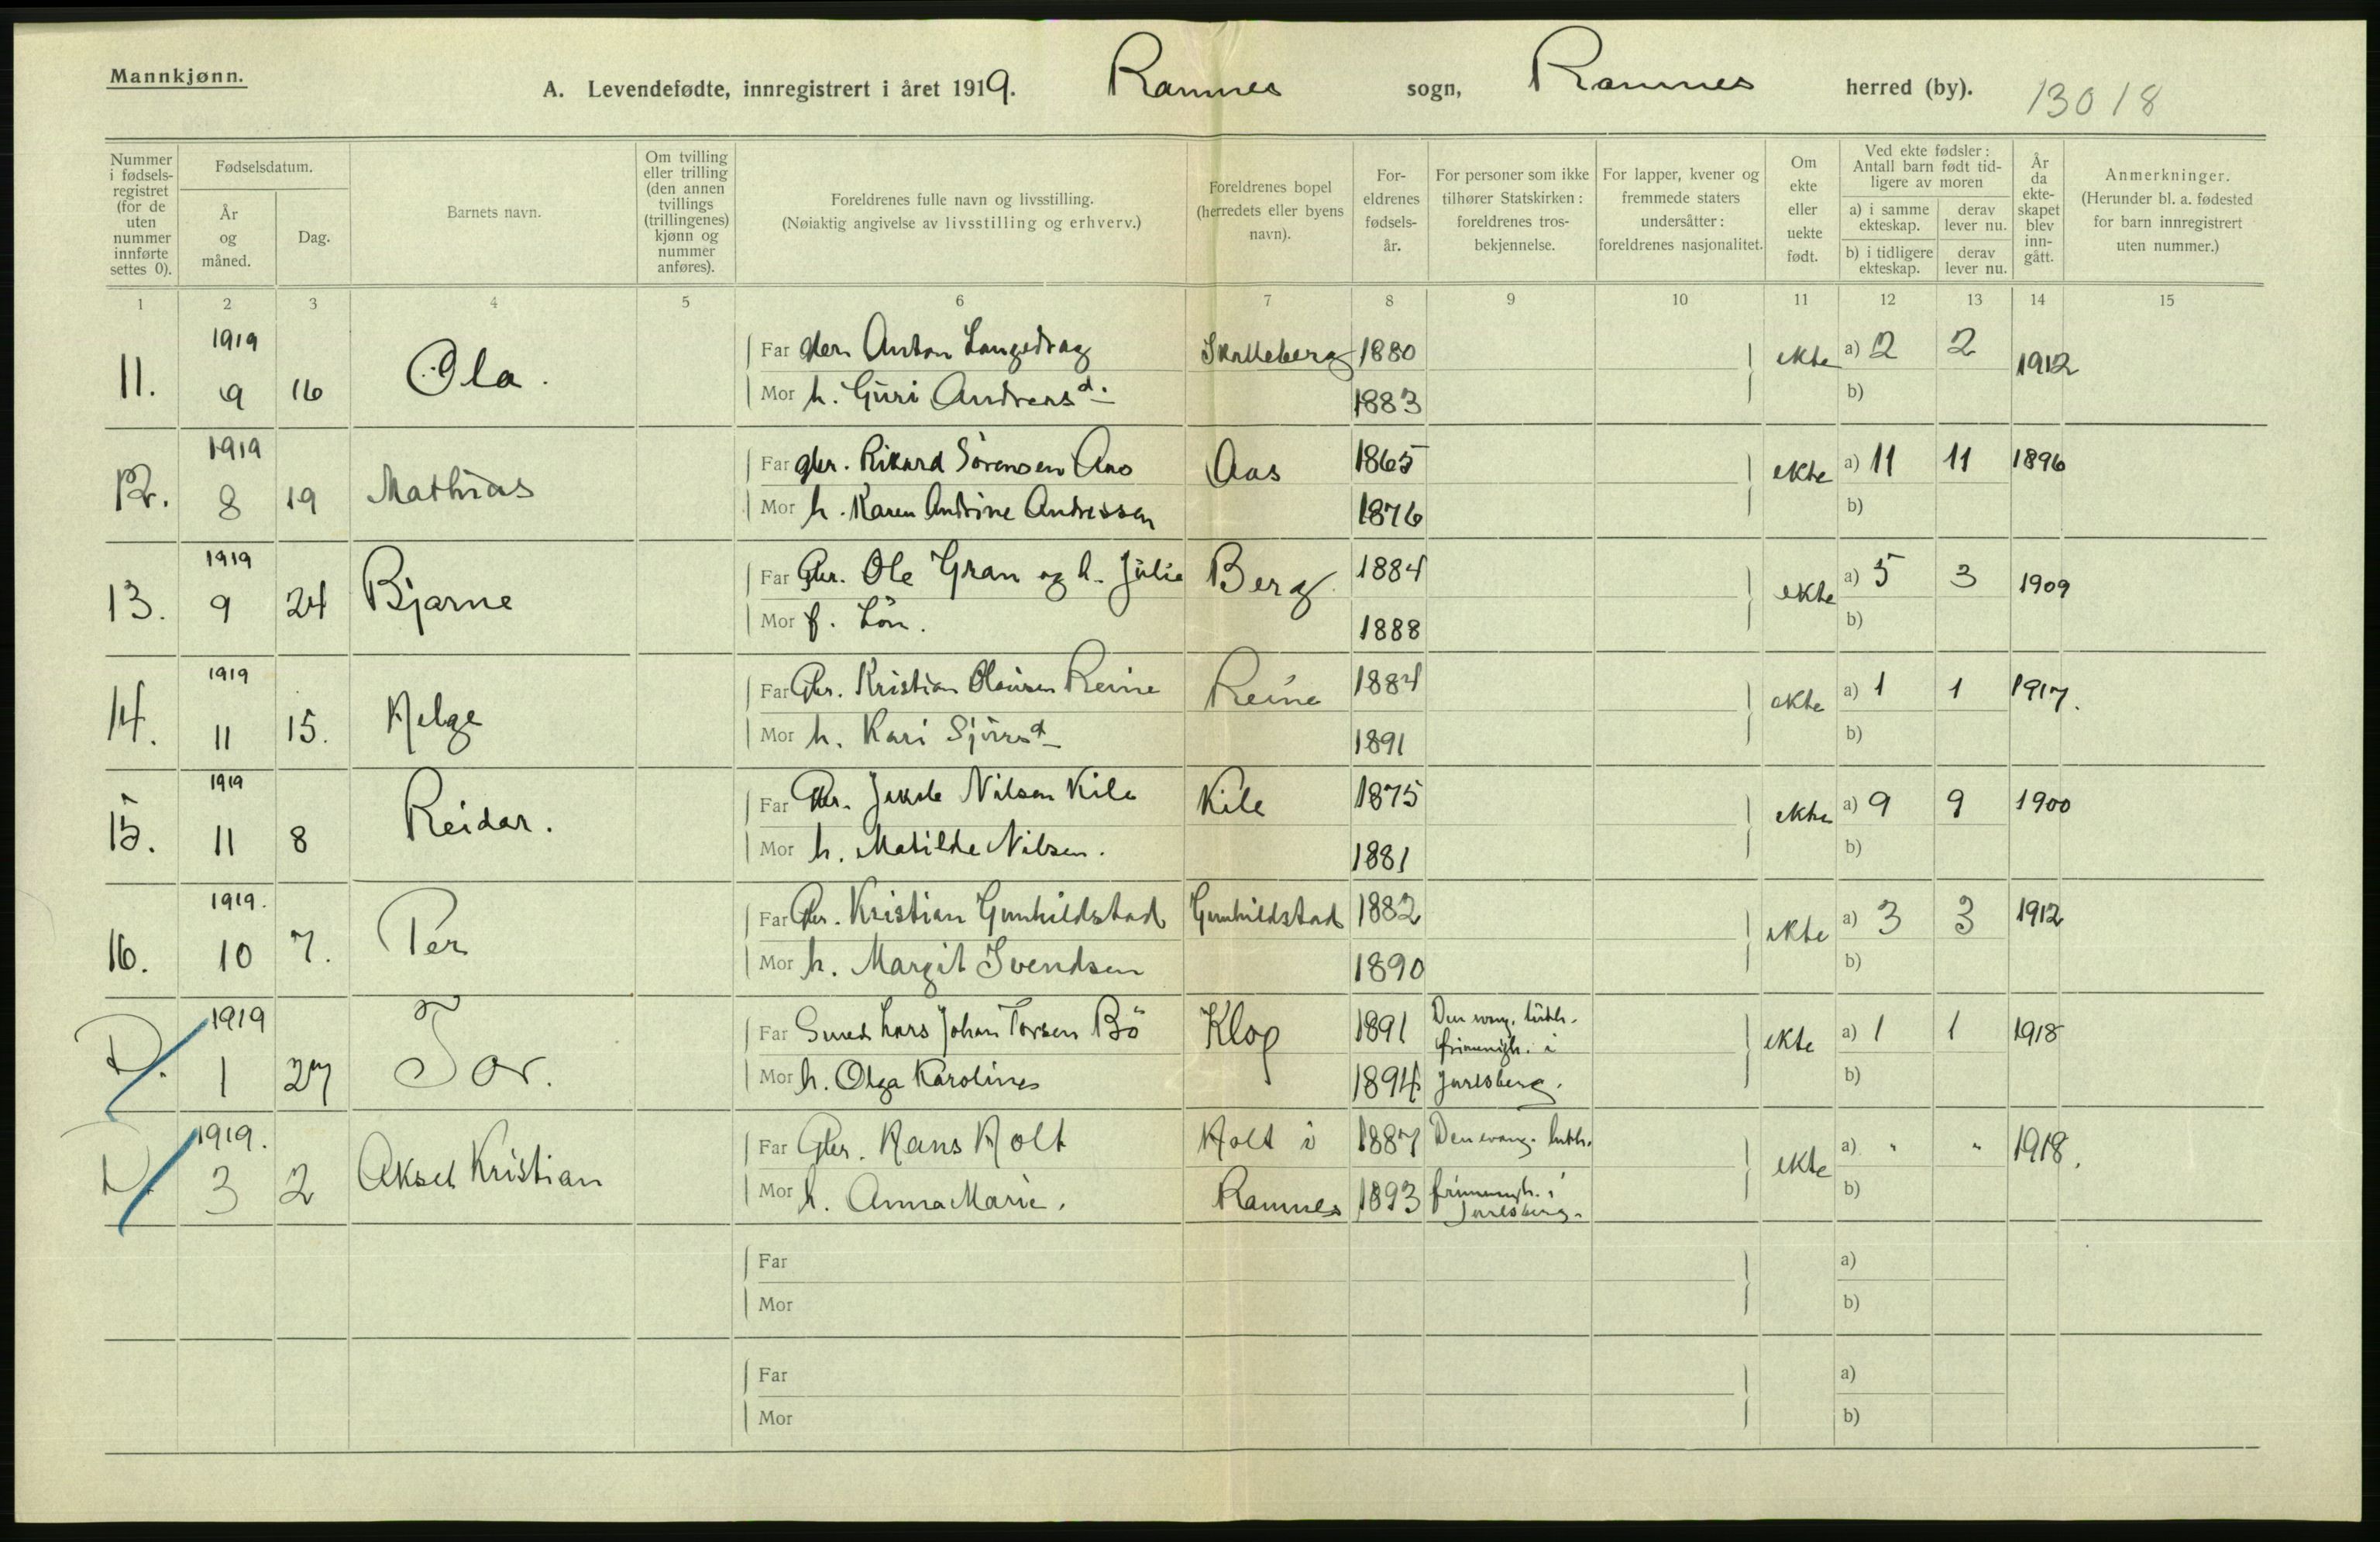 Mannkjønn.
A. Levendefødte, innregistrert i året 1919. Ramnes sogn, Ramnes herred (by). 13018
Nummer i fødsels-registret (for de uten nummer innførte settes 0).
Fødselsdatum.
År og måned.
Dag.
Barnets navn.
Om tvilling eller trilling (den annen tvillings (trillingenes) kjønn og nummer anføres).
Foreldrenes fulle navn og livsstilling.
(Nøiaktig angivelse av livsstilling og erhverv.)
Foreldrenes bopel (herredets eller byens navn).
For-eldrenes fødsels-år.
For personer som ikke tilhører Statskirken: foreldrenes tros-bekjennelse.
For lapper, kvener og fremmede staters undersåtter: foreldrenes nasjonalitet.
Om ekte eller uekte født.
Ved ekte fødsler: Antall barn født tid-ligere av moren
a) i samme ekteskap. derav lever nu.
b) i tidligere ekteskap. derav lever nu.
År da ekte-skapet blev inn-gått.
Anmerkninger.
(Herunder bl. a. fødested for barn innregistrert uten nummer.)
1 2 3 4 5 6 7 8 9 10 11 12 13 14 15
11. 1919 9 16 Ola.
Far Anton Langedrag 1880 ekte a) 2 2 1912
Mor h. Guri Andersd. 1883 b)
12. 1919 8 19 Mathias
Far gbr. Rikard Sörensen Aas Aas 1865 ekte a) 11 11 1896
Mor h. Karen Andrine Andressen 1876 b)
13. 1919 9 24 Bjarne
Far Gbr. Ole Gran og h. Julie Berg 1884 ekte a) 5 3 1909
Mor f. Lön. 1888 b)
14. 1919 11 15. Helge
Far Gbr. Kristian Olausen Reine Reine 1884 ekte a) 1 1 1917.
Mor h. Kari 1891 b)
15. 1919 11 8 Reidar.
Far Gbr. Nilsen Kile Kile 1875 ekte a) 9 9 1900
Mor h. Matilde Nilsen. 1881 b)
16. 1919. 10 7. Per
Far Gbr. Kristian Gunhildstad Gunhildstad 1882 ekte a) 3 3 1912
Mor h. Margit Svendsen 1890 b)
D. 1919 1 27 Tor.
Far Smed Lars Johan Torsen Bö Klop 1891 Den evang. luth. frimenigh. i ekte a) 1 1 1918
Mor h. Olga Karolines 1894 Jarlsberg. b)
D. 1919. 3 2 Aksel Kristian
Far Gbr. Hans Holt Holt i 1887 Den evang. luth. ekte a) " " 1918.
Mor h. Anna Marie. Ramnes 1893 frimenigh. i Jarlsberg. b)
Far a)
Mor b)
Far a)
Mor b)